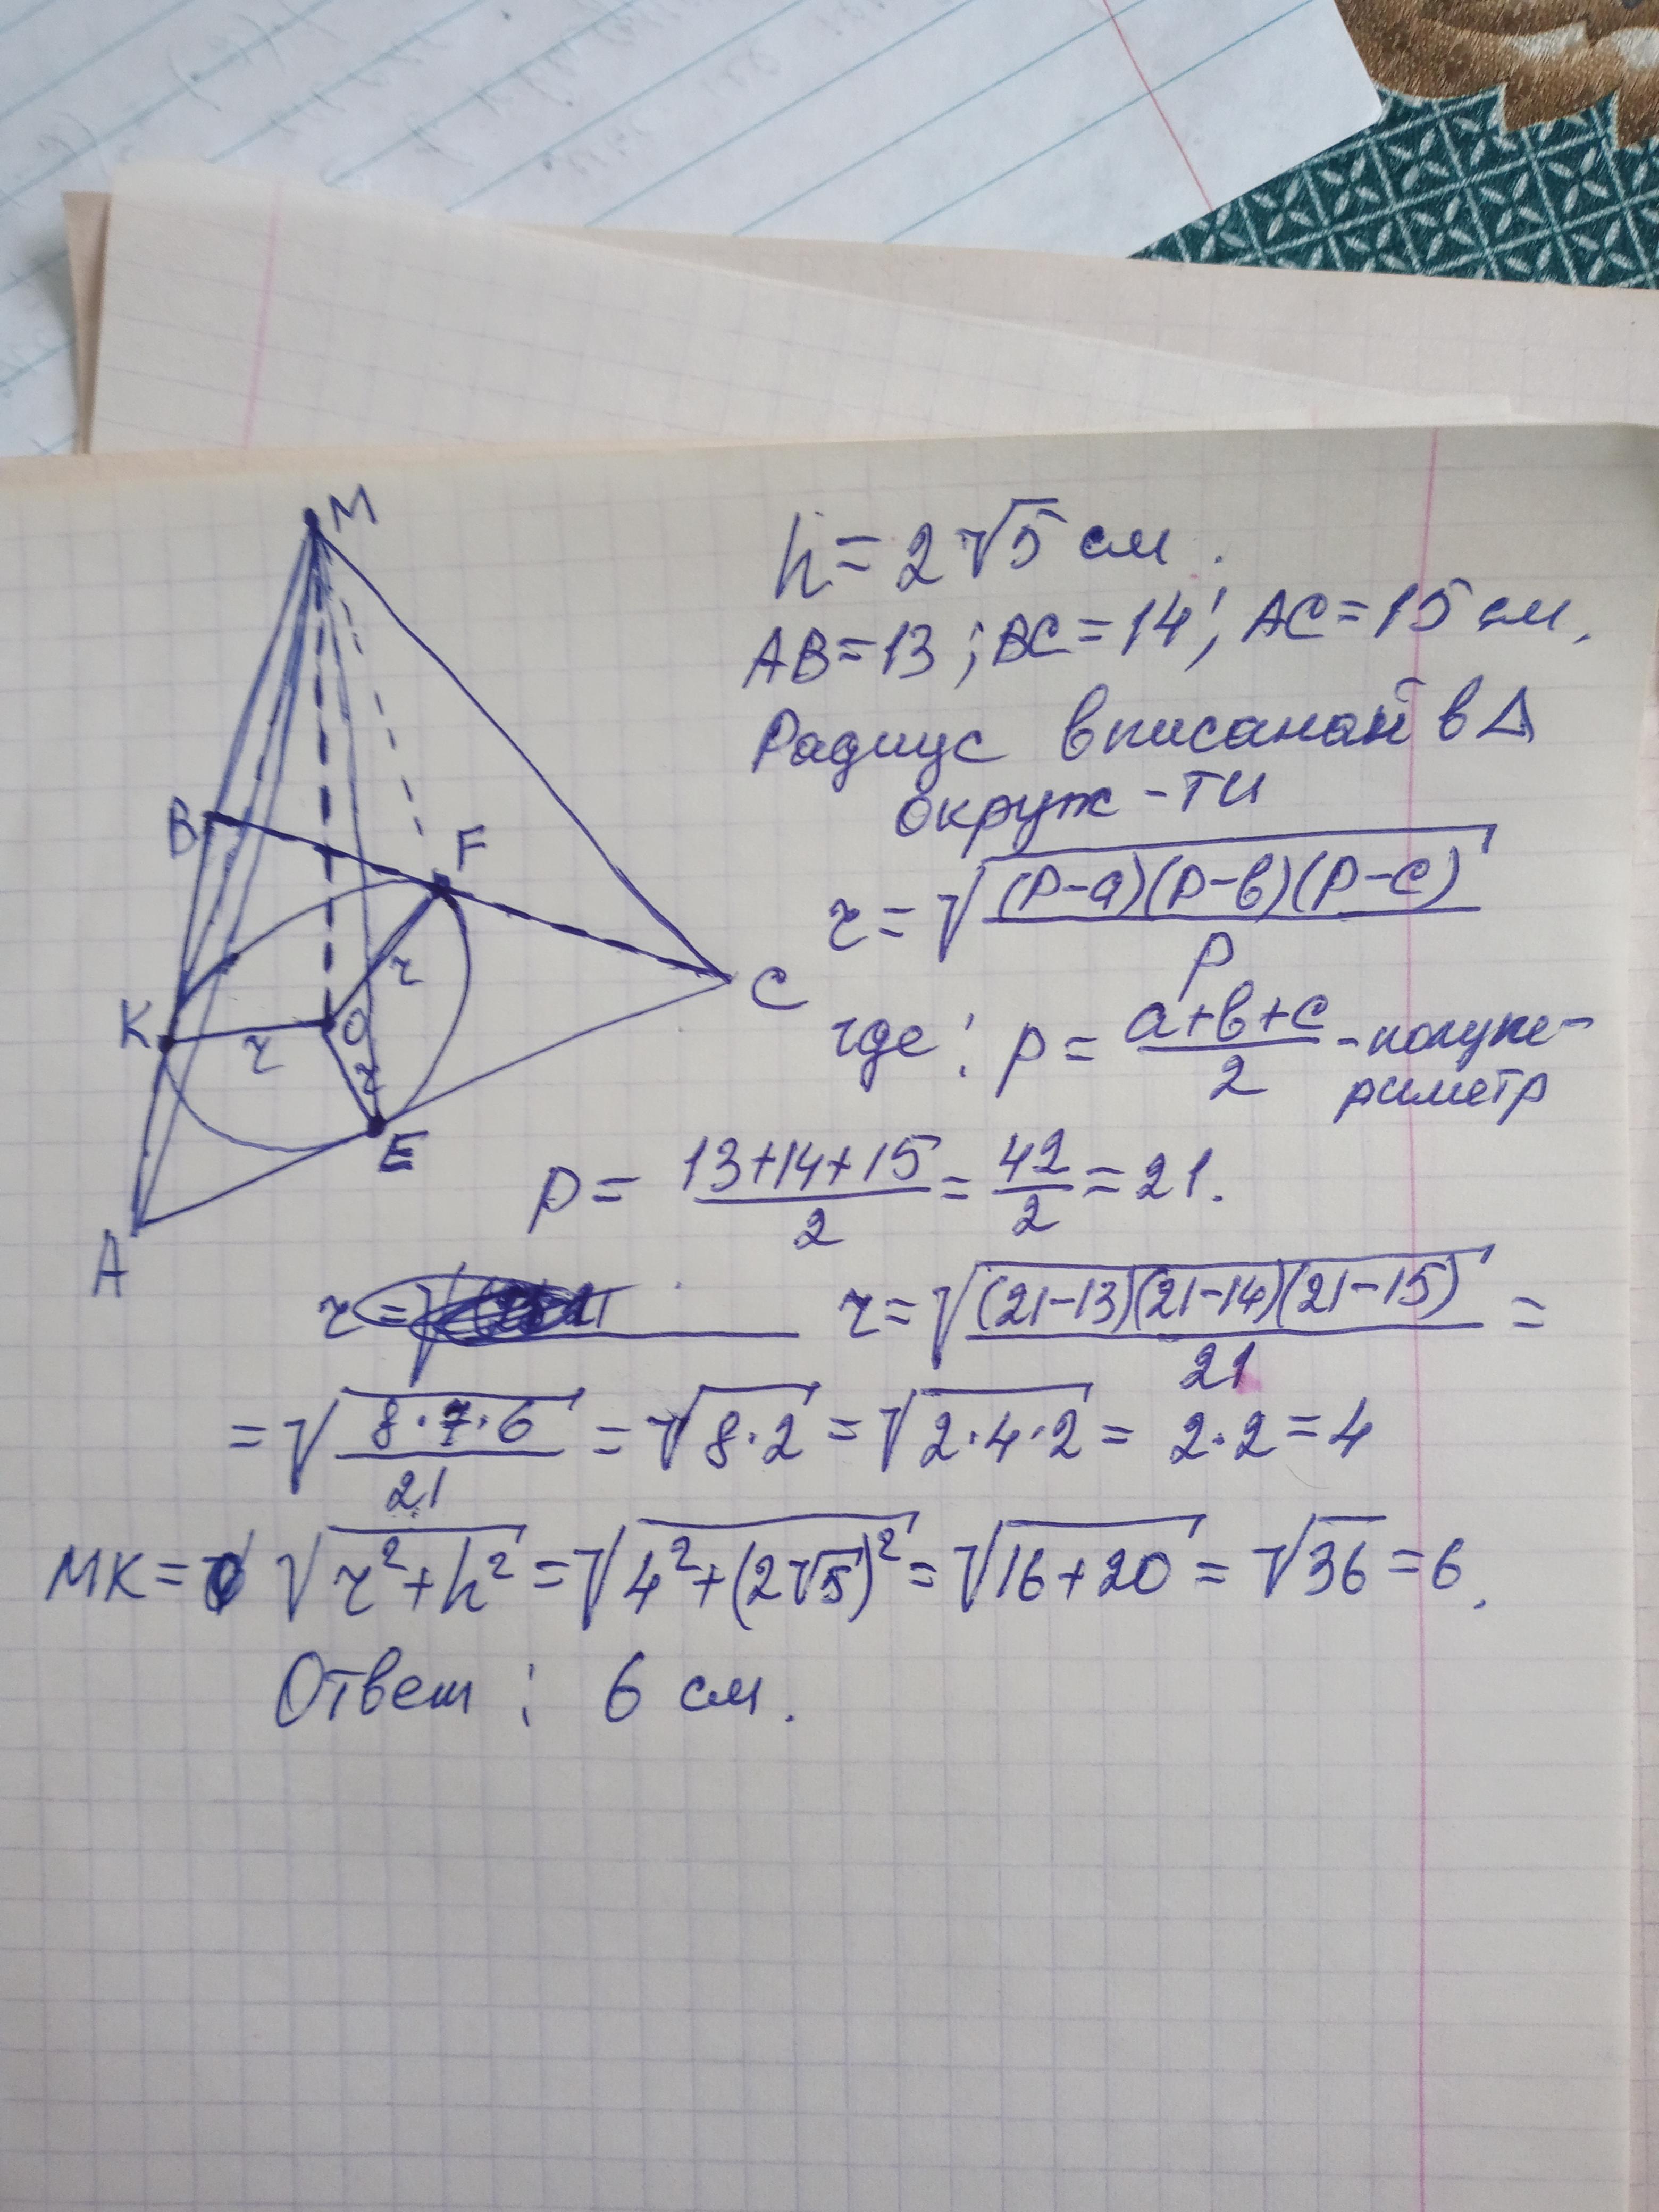 M
h = 2√5 см.
AB = 13; BC = 14; AC = 15 см.
Радиус вписаной в Δ
окруж-ти
B
F
r = √((p-a)(p-b)(p-c)/p)
C
K
O
r
r
r
где: p = (a+b+c)/2 - полупе-
риметр
E
A
p = (13+14+15)/2 = 42/2 = 21.
r = r = √((21-13)(21-14)(21-15)/21) =
= √(8·7·6/21) = √(8·2) = √(2·4·2) = 2·2 = 4
MK = √(r²+h²) = √(4²+(2√5)²) = √(16+20) = √36 = 6.
Ответ: 6 см.